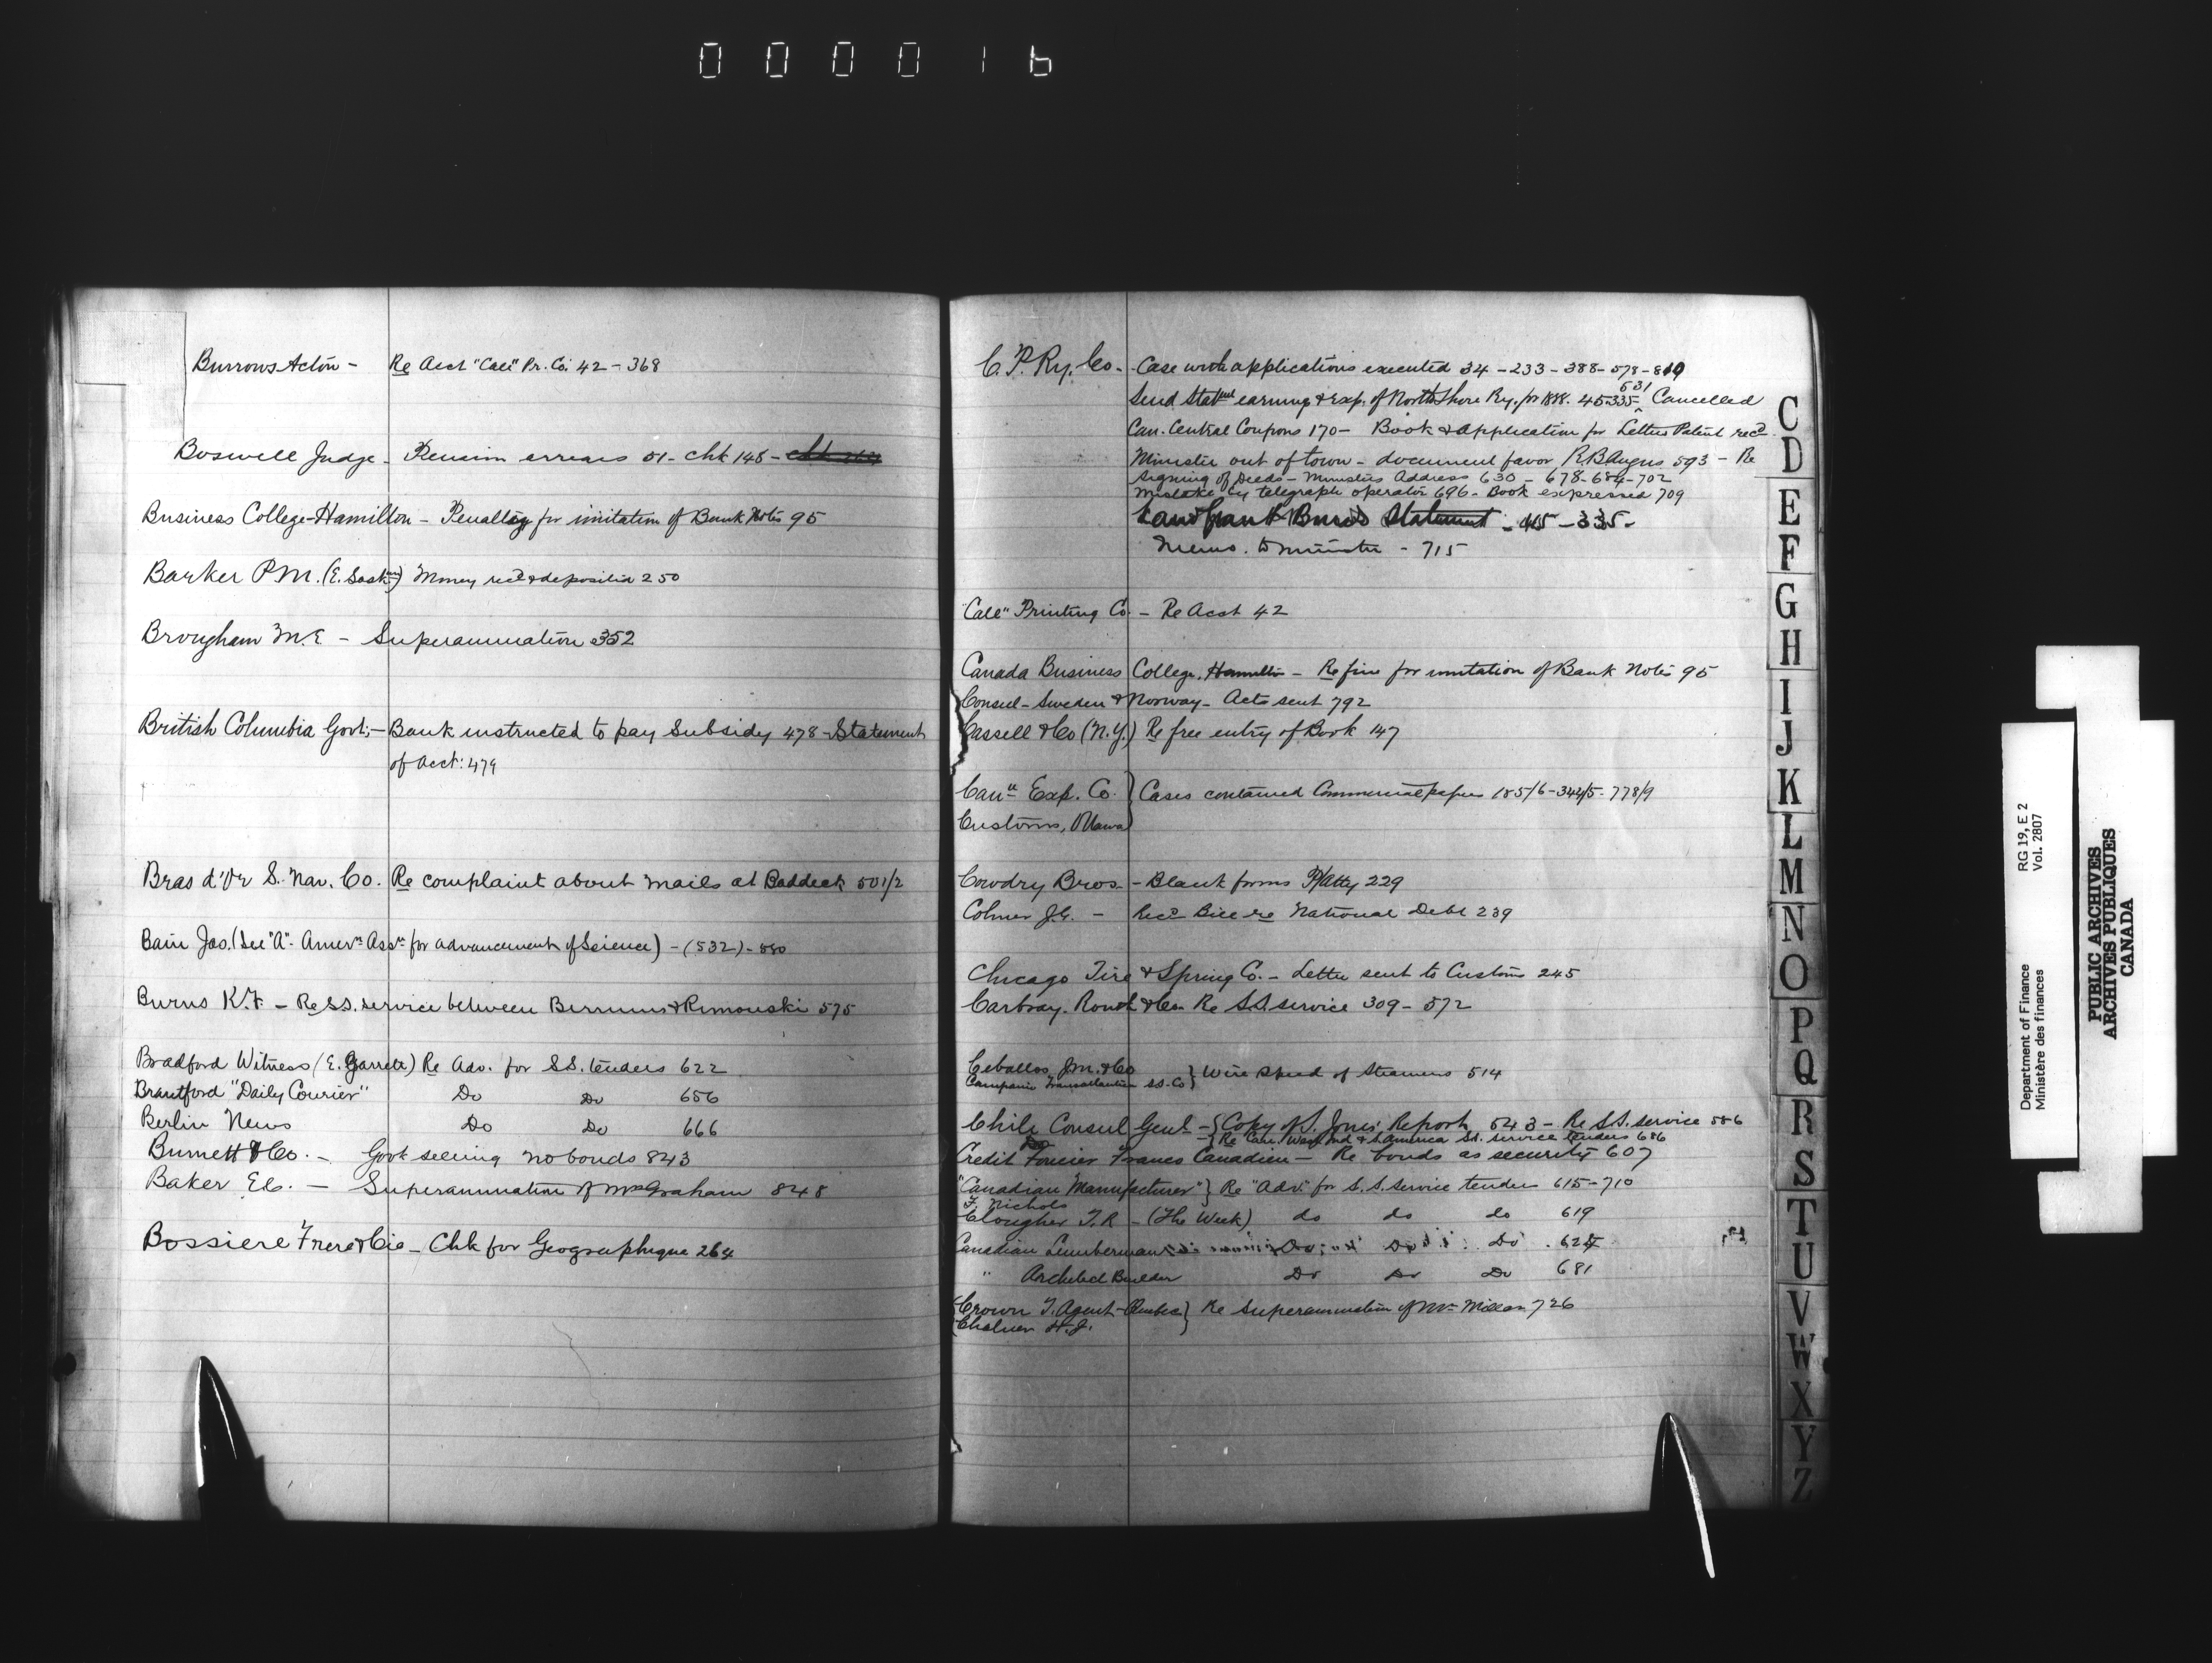 000016
Burrows Acton - Re Acct "Call" Pr. Co. 42 - 368
Boswell Judge - Pension arrears 51 - Chk 148 -
Business College - Hamilton - Penalty for imitation of Bank Notes 95
Barker P.M. Money recd & deposited 250
Brougham M.E - Superannuation 352
British Columbia Govt; - Bank instructed to pay Subsidy 478 - Statement
of acct: 479
Bras d'Or S. Nav. Co. Re complaint about mails at Baddeck 501/2
Bain Jas. (See "A" - Amern Assn for advancement of Science) - (532) - 550
Burns K.F - Re S.S. service between Rimouski 575
Bradford Witness (E. Garrett) Re Adv. for S.S. tenders 622
Brantford "Daily Courier" Do Do 656
Berlin News Do Do 666
Burnett & Co. - Govt selling no bonds 843
Baker E.C. - Superannuation of McGraham 848
Bossiere Frere & Cie - Chk for Geographique 264
C.P. Ry. Co. - Case with applications executed 34 - 233 - 388 - 578 - 819
631
Send Statmt earning & Exp. of North Shore Ry. for 1888. 45-335 ^ Cancelled
Can. Central Coupons 170 - Book & application for Letters Patent recd
Minister out of town - document favor R.B. Angus 593 - Re
signing of Deeds - Ministers Address 630 - 678-684-702
mistake by telegraph operator 696 - Book expressed 709
Land grant Bonds Statement - 45 - 335 -
Memo. to minister - 715
"Call" Printing Co. - Re Acct 42
Canada Business College, Hamilton - Re fine for imitation of Bank Notes 95
Consul - Sweden & Norway - Acts sent 792
Cassell & Co (N.Y.) Re free entry of Book 147
Cann Exp. Co. } Cases contained Commercial papers 185/6 - 344/5 - 778/9
Customs, Ottawa
Cowdry Bros. - Blank forms P/Atty 229
Colmer J.G. - Recd Bill re National Debt 239
Chicago Tire & Spring Co. - Letter sent to Customs 245
Carbray, Routh & Co Re S.S. service 309 - 572
Ceballos, J.M. & Co } Wire speed of Steamers 514
Campania Transatlantica SS. Co
Chili Consul Genl - { Copy of S. Jones' Report 543 - Re S.S. service 586
Do - { Re Can. West Ind & S. America SS. service tenders 686
Credit Foncier Franco Canadien - Re bonds as security 607
"Canadian Manufacturer" } Re "Adv." for S.S. Service tenders 615 - 710
F. Nichols
Clougher T.R - (The Week) do do do 619
Canadian Lumberman Do Do Do
" Architect Builder Do Do Do 681
{ Crown T. Agent - Quebec } Re Superannuation of Mr Millan 726
Chaloner H.J.
C
D
E
F
G
H
I
J
K
L
M
N
O
P
Q
R
S
T
U
V
W
X
Y
Z
Department of Finance RG 19, E 2
Ministère des finances Vol. 2807
PUBLIC ARCHIVES
ARCHIVES PUBLIQUES
CANADA